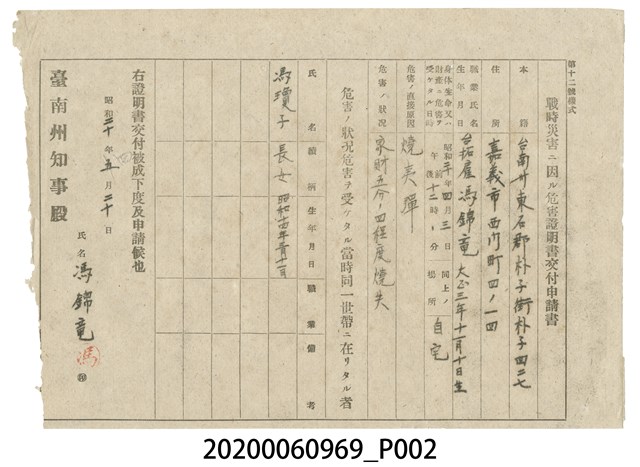 第十二號樣式
戰時災害ニ因ル危害證明書交付申請書
本籍 台南州東石郡朴子街朴子四二七
住所 嘉義市西門町四ノ一四
職業氏名生年月日 台拓雇 馮錦竜 大正三年十一月十日生
身体生命又ハ財產ニ危害ヲ受ケタル日時 昭和二十年四月三日 午前十二時 分 同上ノ場所 自宅
危害ノ直接原因 燒夷彈
危害ノ狀況 家財五分ノ四程度燒失
危害ノ狀況危害ヲ受ケタル當時同一世帶ニ在リタル者
氏名 續柄 生年月日 職業 備考
馮瓊子 長女
右證明書交付被成下度及申請候也
昭和二十年五月二十日
氏名 馮錦竜 馮 ㊞
臺南州知事殿
20200060969_P002